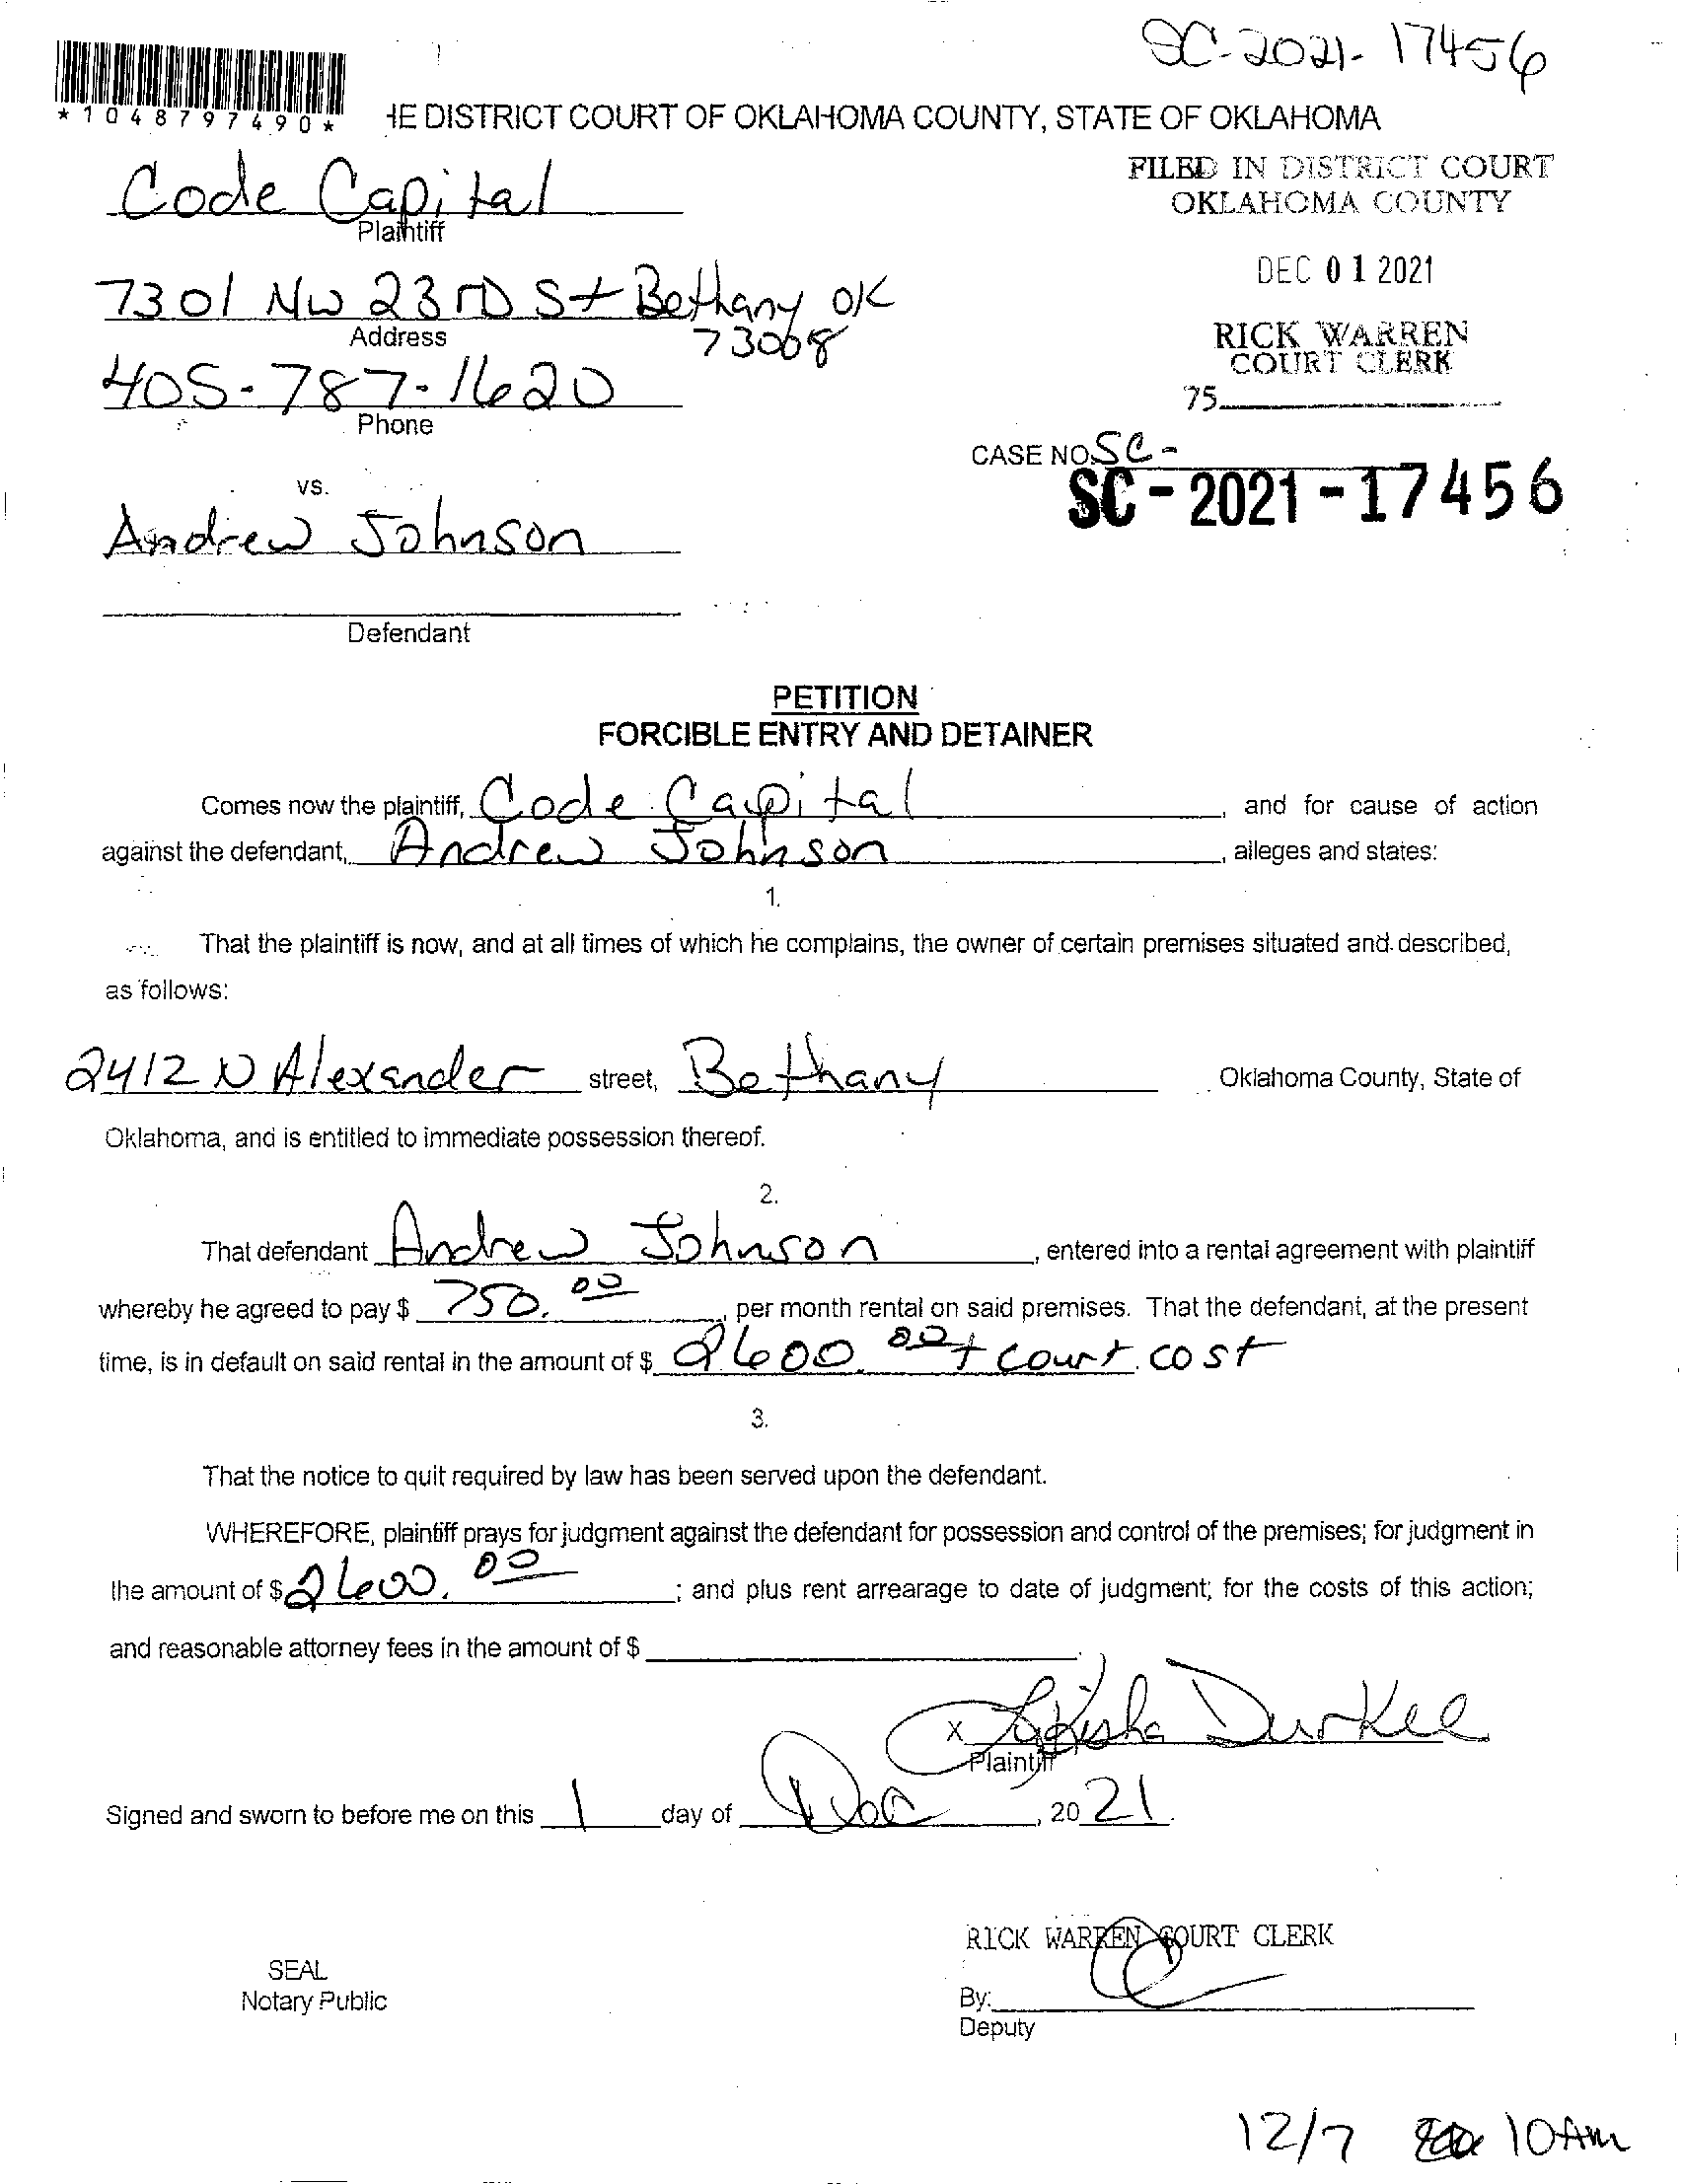 SC-2021-17456
*1048797490*
HE DISTRICT COURT OF OKLAHOMA COUNTY, STATE OF OKLAHOMA
Code Capital
Plaintiff
FILED IN DISTRICT COURT
OKLAHOMA COUNTY
7301 NW 23RD St Bethany OK
73008
Address
DEC 01 2021
RICK WARREN
COURT CLERK
405-787-1620
Phone
75
CASE NO. SC-
SC-2021-17456
vs.
Andrew Johnson
Defendant
PETITION
FORCIBLE ENTRY AND DETAINER
Comes now the plaintiff, Code Capital, and for cause of action
against the defendant, Andrew Johnson, alleges and states:
1.
That the plaintiff is now, and at all times of which he complains, the owner of certain premises situated and described,
as follows:
2412 N Alexander street, Bethany Oklahoma County, State of
Oklahoma, and is entitled to immediate possession thereof.
2.
That defendant Andrew Johnson, entered into a rental agreement with plaintiff
whereby he agreed to pay $ 750.00, per month rental on said premises. That the defendant, at the present
time, is in default on said rental in the amount of $ 2600.00 + court cost
3.
That the notice to quit required by law has been served upon the defendant.
WHEREFORE, plaintiff prays for judgment against the defendant for possession and control of the premises; for judgment in
the amount of $ 2600.00; and plus rent arrearage to date of judgment; for the costs of this action;
and reasonable attorney fees in the amount of $
X Durkee
Plaintiff
Signed and sworn to before me on this 1 day of Dec, 2021.
RICK WARREN COURT CLERK
SEAL
Notary Public
By:
Deputy
12/7 10Am